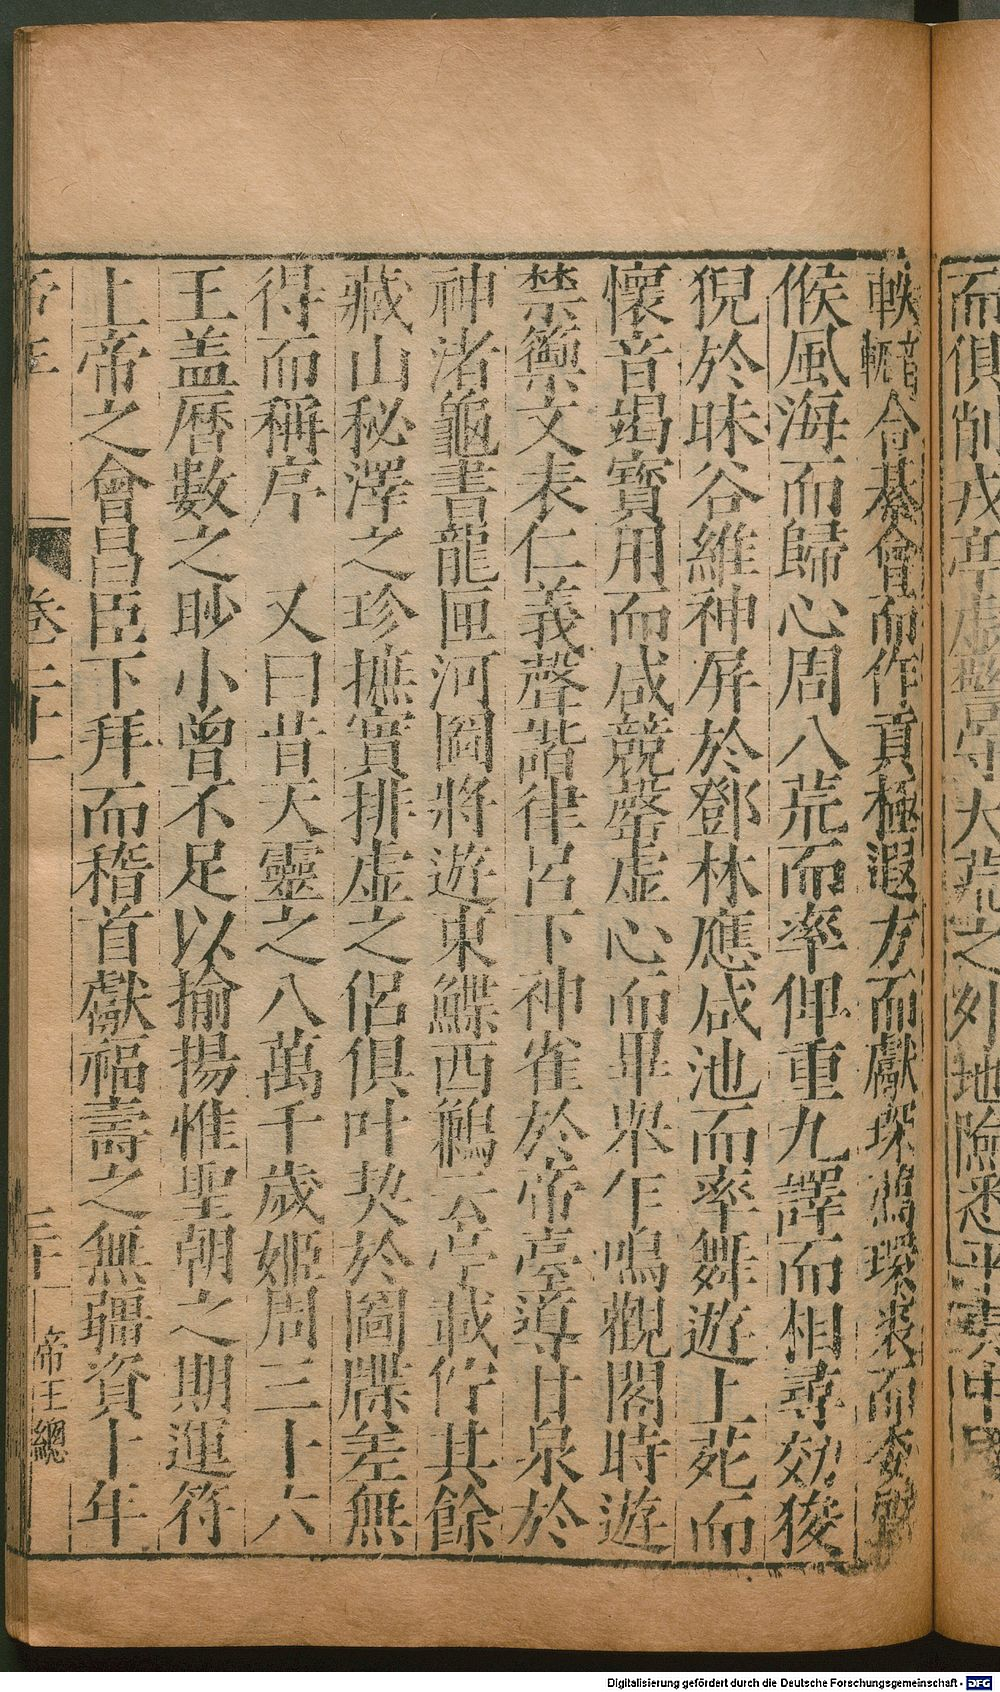 而俱削戎亭虛警守大荒之外地險悉平真中
軼轊合綦會而作貢極遐方而獻琛鵜瓌裘而委
候風海而歸心周八荒而率俾重九譯而相尋効狻
猊於昧谷維神屏於鄧林應咸池而率舞遊上苑而
懷音竭寶用而咸競罄虛心而畢眾乍鳴觀閣時遊
禁籞文表仁義聲諧律呂下神雀於帝臺導甘泉於
神渚龜書龍匣河圖將遊東鰈西鶼云亭載佇其餘
藏山秘澤之珍摭實排虛之侶俱叶契於圖牒差無
得而稱序　又曰昔天靈之八萬千歲姬周三十六
王盖曆數之眇小曾不足以揄揚惟聖朝之期運符
上帝之會昌臣下拜而稽首獻福壽之無疆資十年
卷二十一
三十一
帝王總
Digitalisierung gefördert durch die Deutsche Forschungsgemeinschaft - DFG